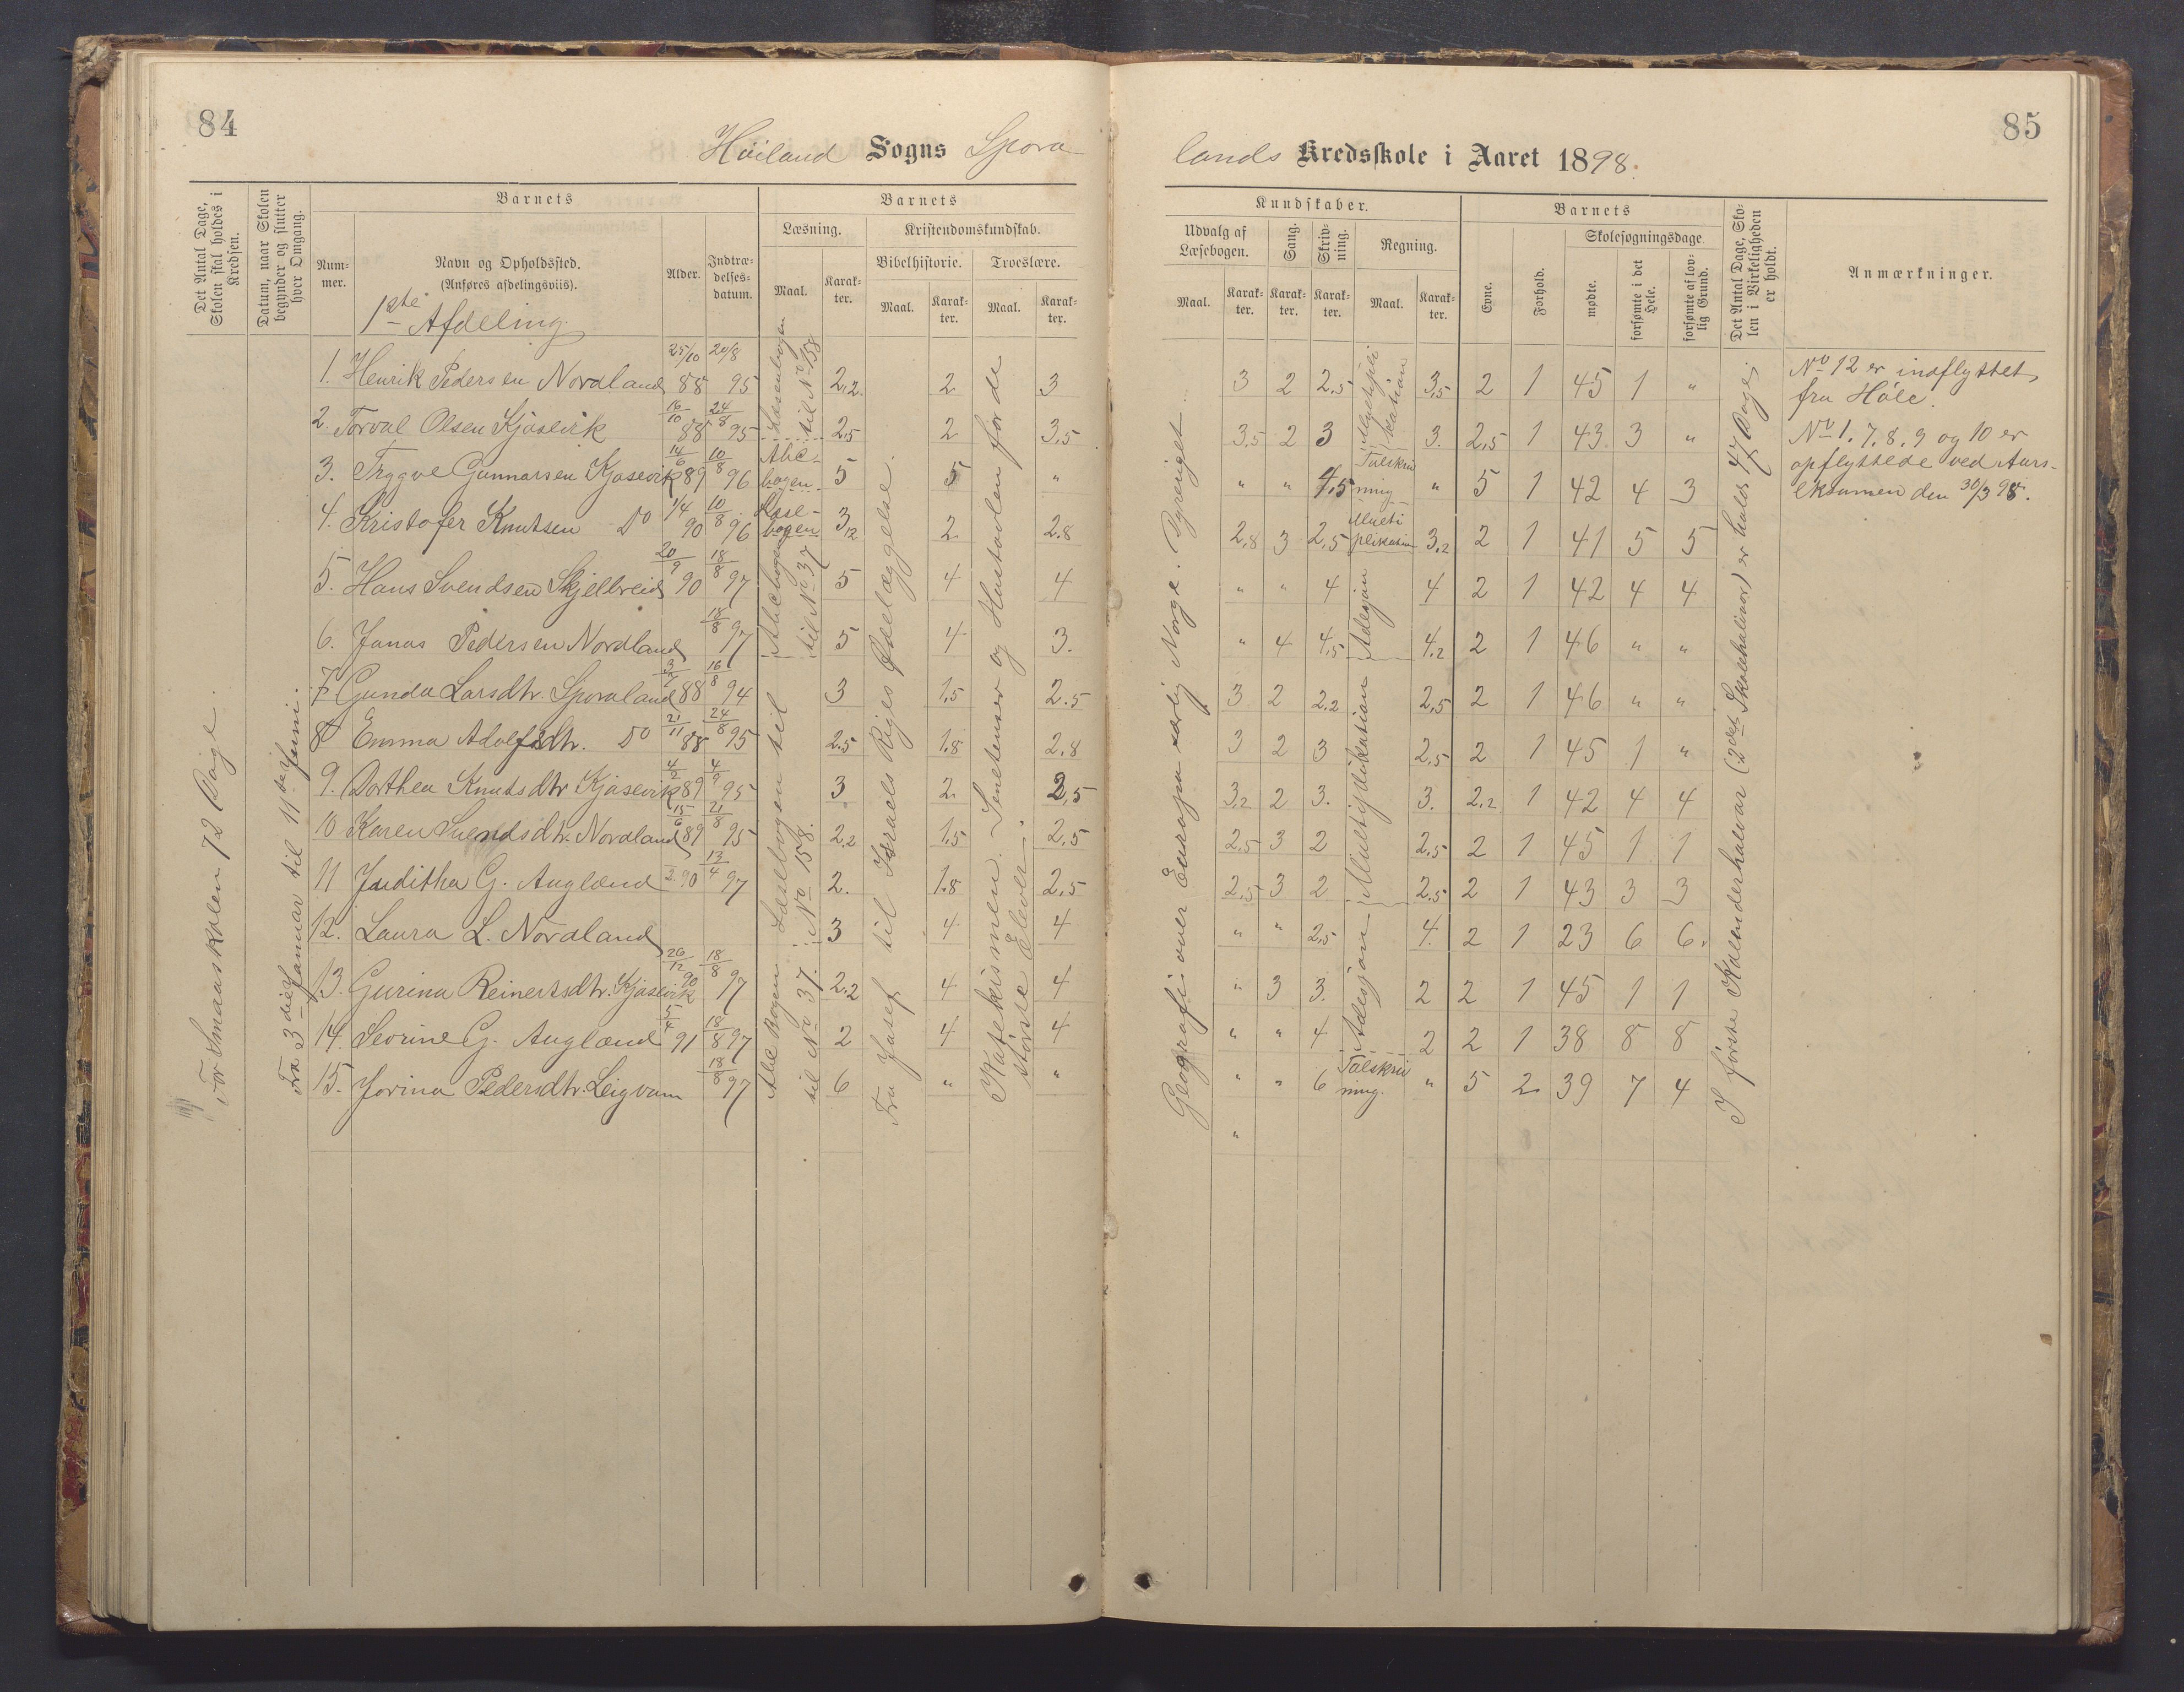 84
Høiland Sogns Spora-
Det Antal Dage, Skolen skal holdes i Kredsen.
Datum, naar Skolen begynder og slutter hver Omgang.
Barnets
Barnets
Læsning. Kristendomskundskab.
Num-mer. Navn og Opholdssted. (Anføres afdelingsviis). Alder. Indtræ-delses-datum. Maal. Karak-ter. Bibelhistorie. Troeslære.
Maal. Karak-ter. Maal. Karak-ter.
1ste Afdeling
For Smaaskolen 72 Dage.
Fra 3die Januar til 11te Juni.
1. Henrik Pedersen Nordland 25/10 88 20/8 95 2,2. 2 3
2. Torval Olsen Kjosevik 16/10 88 24/8 95 2,5 2 3,5
3. Trygve Gunnarsen Kjosevik 14/6 89 10/8 96 5 5 "
4. Kristofer Knutsen Do 1/4 90 10/8 96 3,2 2 2.8
5. Hans Svendsen Skjelbreid 20/9 90 18/8 97 5 4 4
6. Jonas Pedersen Nordland 18/8 97 5 4 3.
7. Gunda Larsdtr. Sporaland 3/7 88 16/8 94 3 1,5 2.5
8. Emma Adolfsdtr. Do 21/11 88 24/8 95 2.5 1.8 2.8
9. Dorthea Knutsdtr Kjosevik 4/2 89 4/9 95 3 2. 2,5
10 Karen Svendsdtr. Nordland 15/6 89 21/8 95 2,2 1,5 2,5
11 Juditha G. Augland 90 13/4 97 2. 1.8 2,5
12. Laura L. Nordland 3 4 4
13. Gurina Reinertsdtr. Kjosevik 26/12 90 18/8 97 2.2 4 4
14. Sevrine G. Augland 5/4 91 18/8 97 2 4 4
15. Jorina Pedersdtr. Leigvam 18/8 97 6 " "
Læsebogen til No 158
Abc-bogen.
Læse-bogen
Abcbogen til No 37
Læsebogen til No 158.
Abc Bogen til No 37.
Fra Josef til Israels Riges Ødelæggelse.
Katekismen. Senetenser og Hustavlen for de større Elever.
85
lands Kredsskole i Aaret 1898.
Kundskaber.
Barnets
Udvalg af Læsebogen. Sang. Skriv-ning. Regning.
Skolesøgningsdage
Maal. Karak-ter. Karak-ter. Karak-ter. Maal. Karak-ter. Evne. Forhold. mødte. forsømte i det Hele. forsømte af lov-lig Grund.
Det Antal Dage, Sko-len i Virkeligheden er holdt.
Anmærkninger.
3 2 2,5 3,5 2 1 45 1 "
3,5 2 3 3. 2,5 1 43 3 "
" " 4,5 " 5 1 42 4 3
2,8 3 2,5 3,2 2 1 41 5 5
" " 4 4 2 1 42 4 4
" 4 4,5 4,2 2 1 46 " "
3 2 2.2 2,5 2 1 46 " "
3 2 3 2,5 2 1 45 1 "
3,2 2 3. 3. 2,2 1 42 4 4
2,5 3 2 2,5 2 1 45 1 1
2,5 3 2 2,5 2 1 43 3 3
" " 2,5 4. 2 1 23 6 6.
" 3 3. 2 2 1 45 1 1
" " 4 2 2 1 38 8 8
" " 6 " 5 2 39 7 4
"
Geografi: over Europa særlig Norge. Dyreriget
Multipli-kation
Talskriv-ning
Multi-plikation
Adesjon
Multiplikation
Adesjon
Talskriv-ning.
I første Kalenderhalvaar (2det Skolehalvaar) er holdt 47 Dage.
No 12 er indflyttet
fra Høle.
No 1. 7. 8. 9 og 10 er
opflyttede ved Aars-
eksamen den 30/3 98.